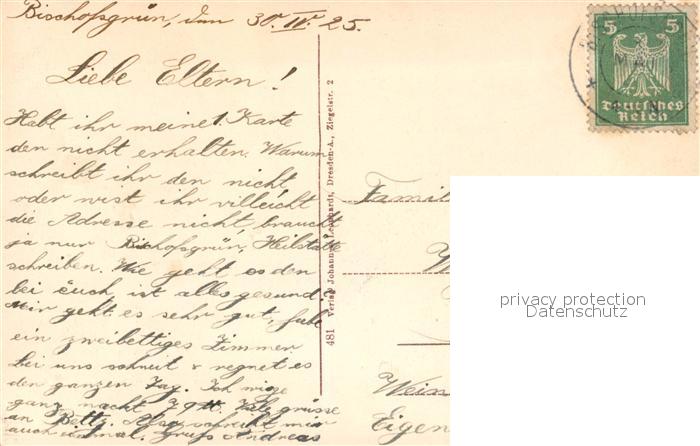 Bischofsgrün, den 30. IV. 25.
Liebe Eltern!
Habt ihr meine 1. Karte
den nicht erhalten. Warum
schreibt ihr den nicht,
oder wist ihr villeicht
die Adresse nicht, braucht
ja nur Bischofsgrün, Heilstätte
schreiben. Wie geht es den
bei Euch ist alles gesund?
Mir geht es sehr gut, habe
ein zweibettiges Zimmer
bei uns schneit & regnet es
den ganzen Tag. Ich wiege
ganz nackt 79 Viele grüsse
an Betty. Also schreibt mir
auch einmal. Gruss Andreas
481 Verlag Johannes Leonhardt, Dresden-A., Ziegelstr. 2
5 5
Deutsches
Reich
Famil
W
privacy protection
Datenschutz
Weiss
Eigen